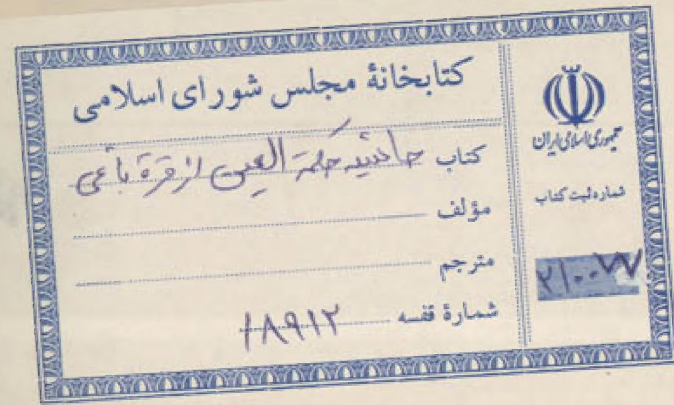 کتابخانهٔ مجلس شورای اسلامی
کتاب حاشیه حکمة العین از قره باغی
مؤلف
مترجم
شمارهٔ قفسه ۱۸۹۱۲
جمهوری اسلامی ایران
شماره ثبت کتاب
۲۱۰۰۷۷